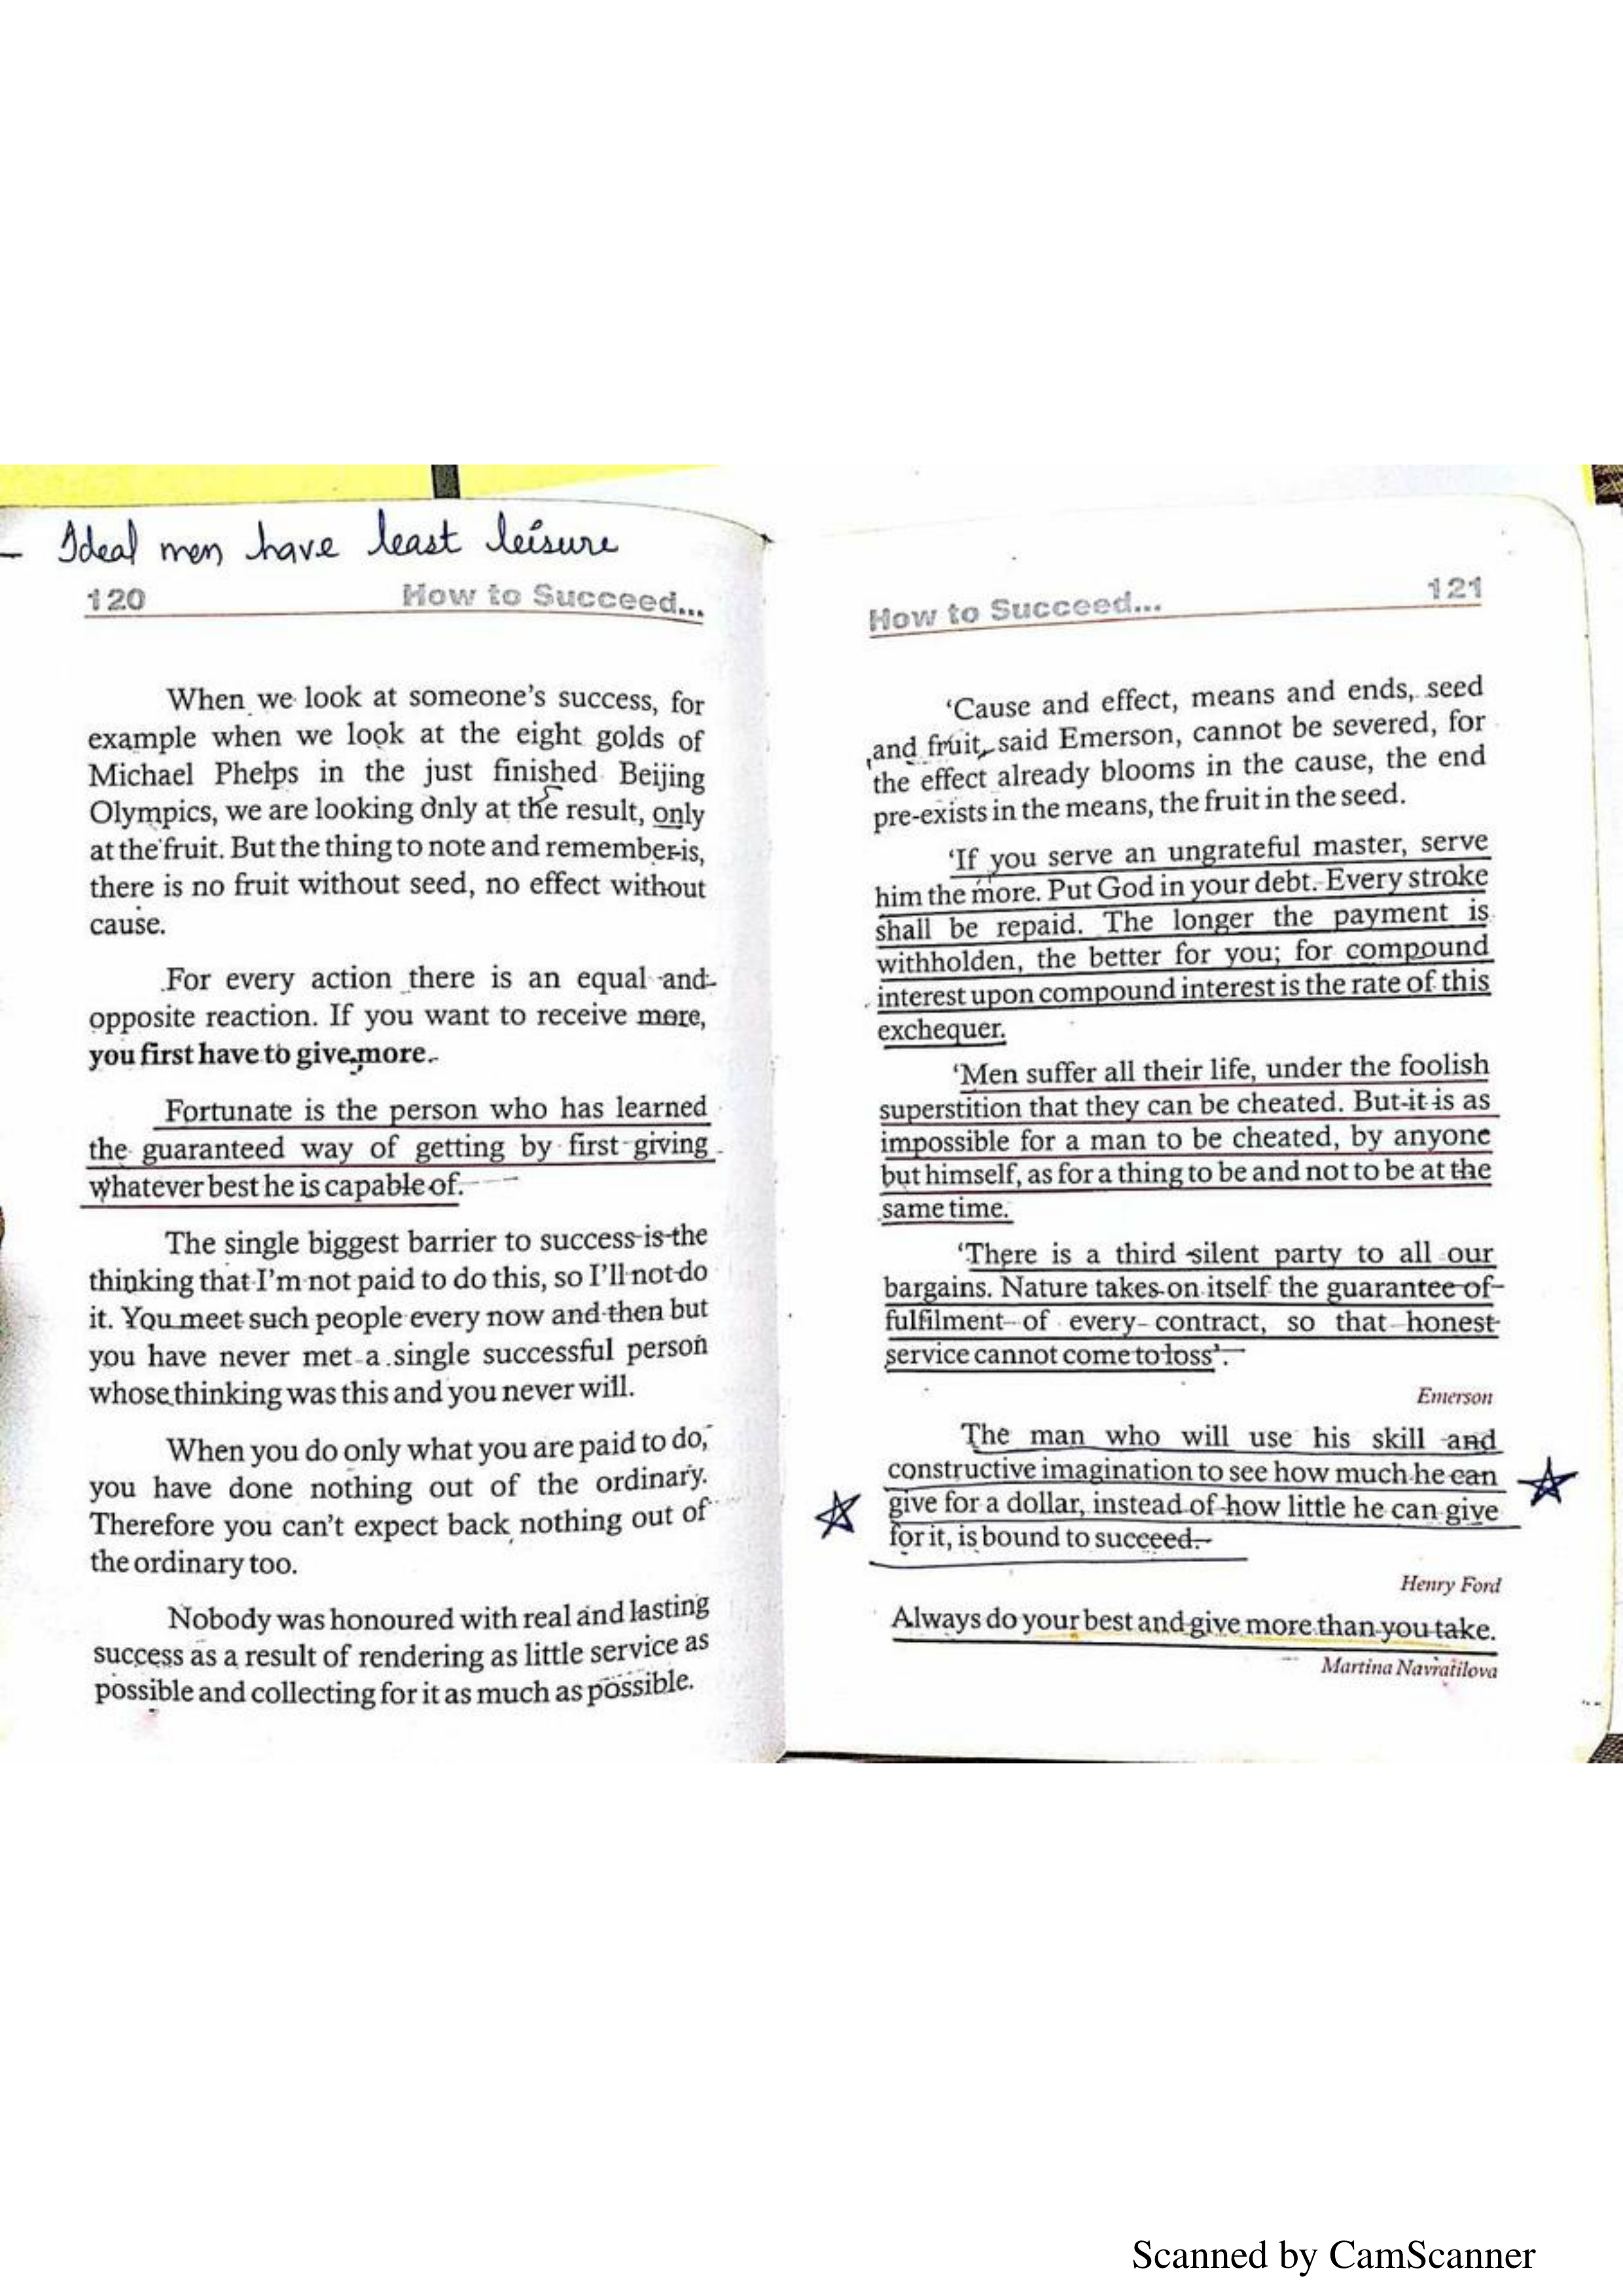 - Ideal men have least leisure
120 How to Succeed...
When we look at someone's success, for
example when we look at the eight golds of
Michael Phelps in the just finished Beijing
Olympics, we are looking only at the result, only
at the fruit. But the thing to note and remember is,
there is no fruit without seed, no effect without
cause.
For every action there is an equal and
opposite reaction. If you want to receive more,
you first have to give more.
Fortunate is the person who has learned
the guaranteed way of getting by first giving
whatever best he is capable of.
The single biggest barrier to success is the
thinking that I'm not paid to do this, so I'll not do
it. You meet such people every now and then but
you have never met a single successful person
whose thinking was this and you never will.
When you do only what you are paid to do,
you have done nothing out of the ordinary.
Therefore you can't expect back nothing out of
the ordinary too.
Nobody was honoured with real and lasting
success as a result of rendering as little service as
possible and collecting for it as much as possible.
How to Succeed... 121
'Cause and effect, means and ends, seed
and fruit, said Emerson, cannot be severed, for
the effect already blooms in the cause, the end
pre-exists in the means, the fruit in the seed.
'If you serve an ungrateful master, serve
him the more. Put God in your debt. Every stroke
shall be repaid. The longer the payment is
withholden, the better for you; for compound
interest upon compound interest is the rate of this
exchequer.
'Men suffer all their life, under the foolish
superstition that they can be cheated. But it is as
impossible for a man to be cheated, by anyone
but himself, as for a thing to be and not to be at the
same time.
'There is a third silent party to all our
bargains. Nature takes on itself the guarantee of
fulfilment of every contract, so that honest
service cannot come to loss'.
Emerson
The man who will use his skill and
constructive imagination to see how much he can
give for a dollar, instead of how little he can give
for it, is bound to succeed.
Henry Ford
Always do your best and give more than you take.
Martina Navratilova
Scanned by CamScanner